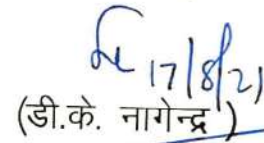 17/8/21
(डी.के. नागेन्द्र)